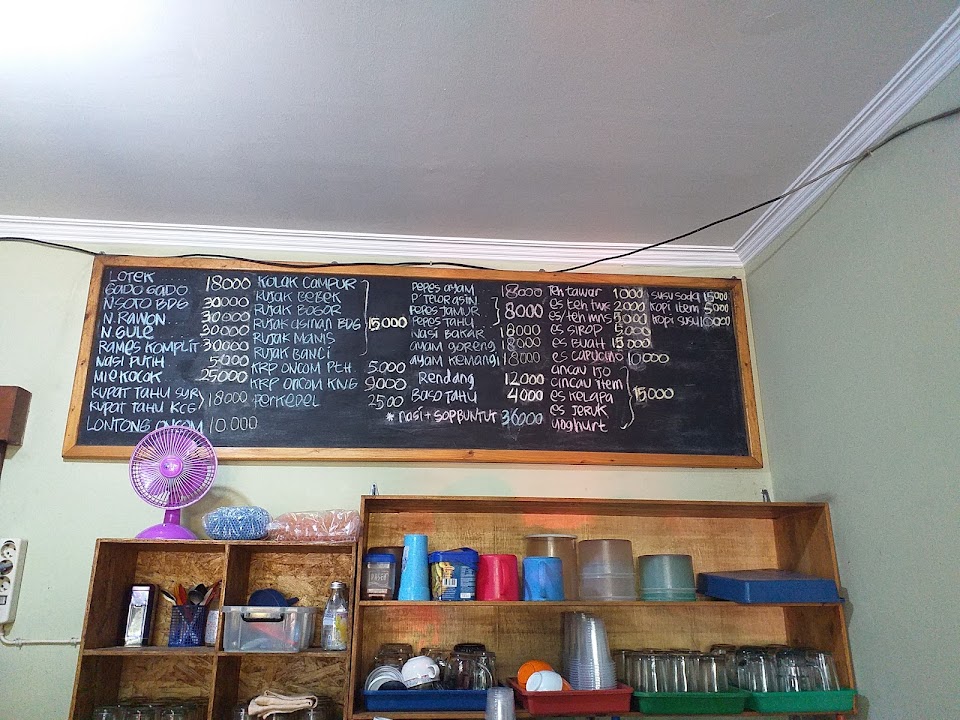 LOTEK
GADO GADO 18000
N.SOTO BDG 30000
N.RAWON 30000
N.GULE 30000
RAMES KOMPLIT 30000
NASI PUTIH 5000
MIE KOCOK 25000
KUPAT TAHU SUR
KUPAT TAHU KCG 18000
LONTONG ONCOM 10.000
KOLAK CAMPUR
RUJAK BEBEK
RUJAK BOGOR
RUJAK ASINAN BDG 15000
RUJAK MANIS
RUJAK BANCI
KRP ONCOM PTH 5.000
KRP ONCOM KNG 9000
PERKEDEL 2500
PEPES AYAM 18000
P TELOR ASIN
PEPES JAMUR 8000
PEPES TAHU
NASI BAKAR 18000
AYAM GORENG 18000
AYAM KEMANGI 18000
Rendang 12000
BASO TAHU 4000
* NASI + SOP BUNTUT 36000
teh tawar 1.000
es teh mns 2.000
es/teh mns 5.000
es SIROP 5.000
es BUAH 15000
es CAPUCINO 10.000
CINCAU IJO
CINCAU ITEM
es KELAPA 15000
es JERUK
yoghurt
SUSU SODA 15000
KOPI ITEM 5000
KOPI SUSU 10000